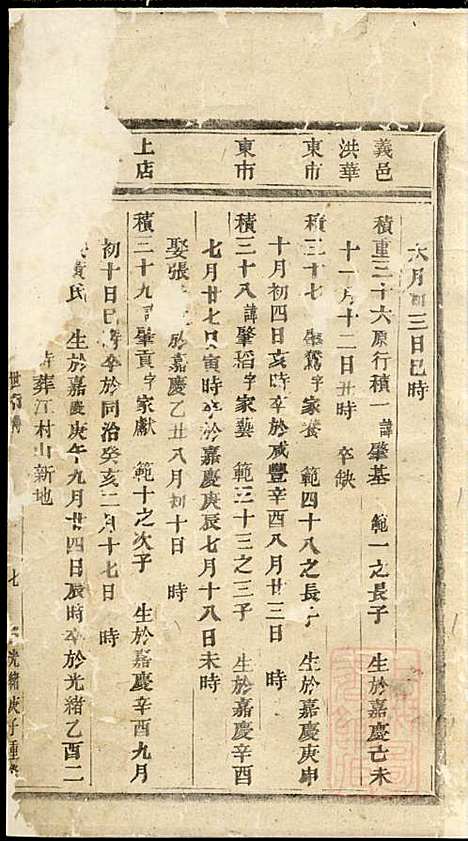 六月初三日巳時
義邑
洪華
積重三十六原行積一諱肇基 範一之長子 生於嘉慶己未
十一月十二日丑時 卒缺
東市
積三十七 肇 字家 範四十八之長子 生於嘉慶庚申
十月初四日亥時卒於咸豐辛酉八月廿三日 時
東市
積三十八諱肇稻字家藝 範三十三之三子 生於嘉慶辛酉
七月廿七日寅時卒於嘉慶庚辰七月十八日未時
娶張 於嘉慶乙丑八月初十日 時
上店
積三十九諱肇貢字家獻 範十之次子 生於嘉慶辛酉九月
初十日巳時卒於同治癸亥二月十七日 時
黃氏 生於嘉慶庚午九月廿四日辰時卒於光緒乙酉二
時葬江村山新地
世
七
光緒庚子重